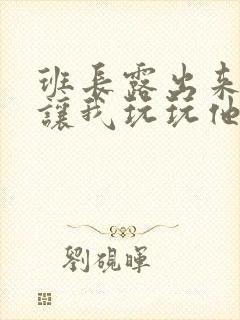 班長露出来
讓我玩玩他
劉硯暉